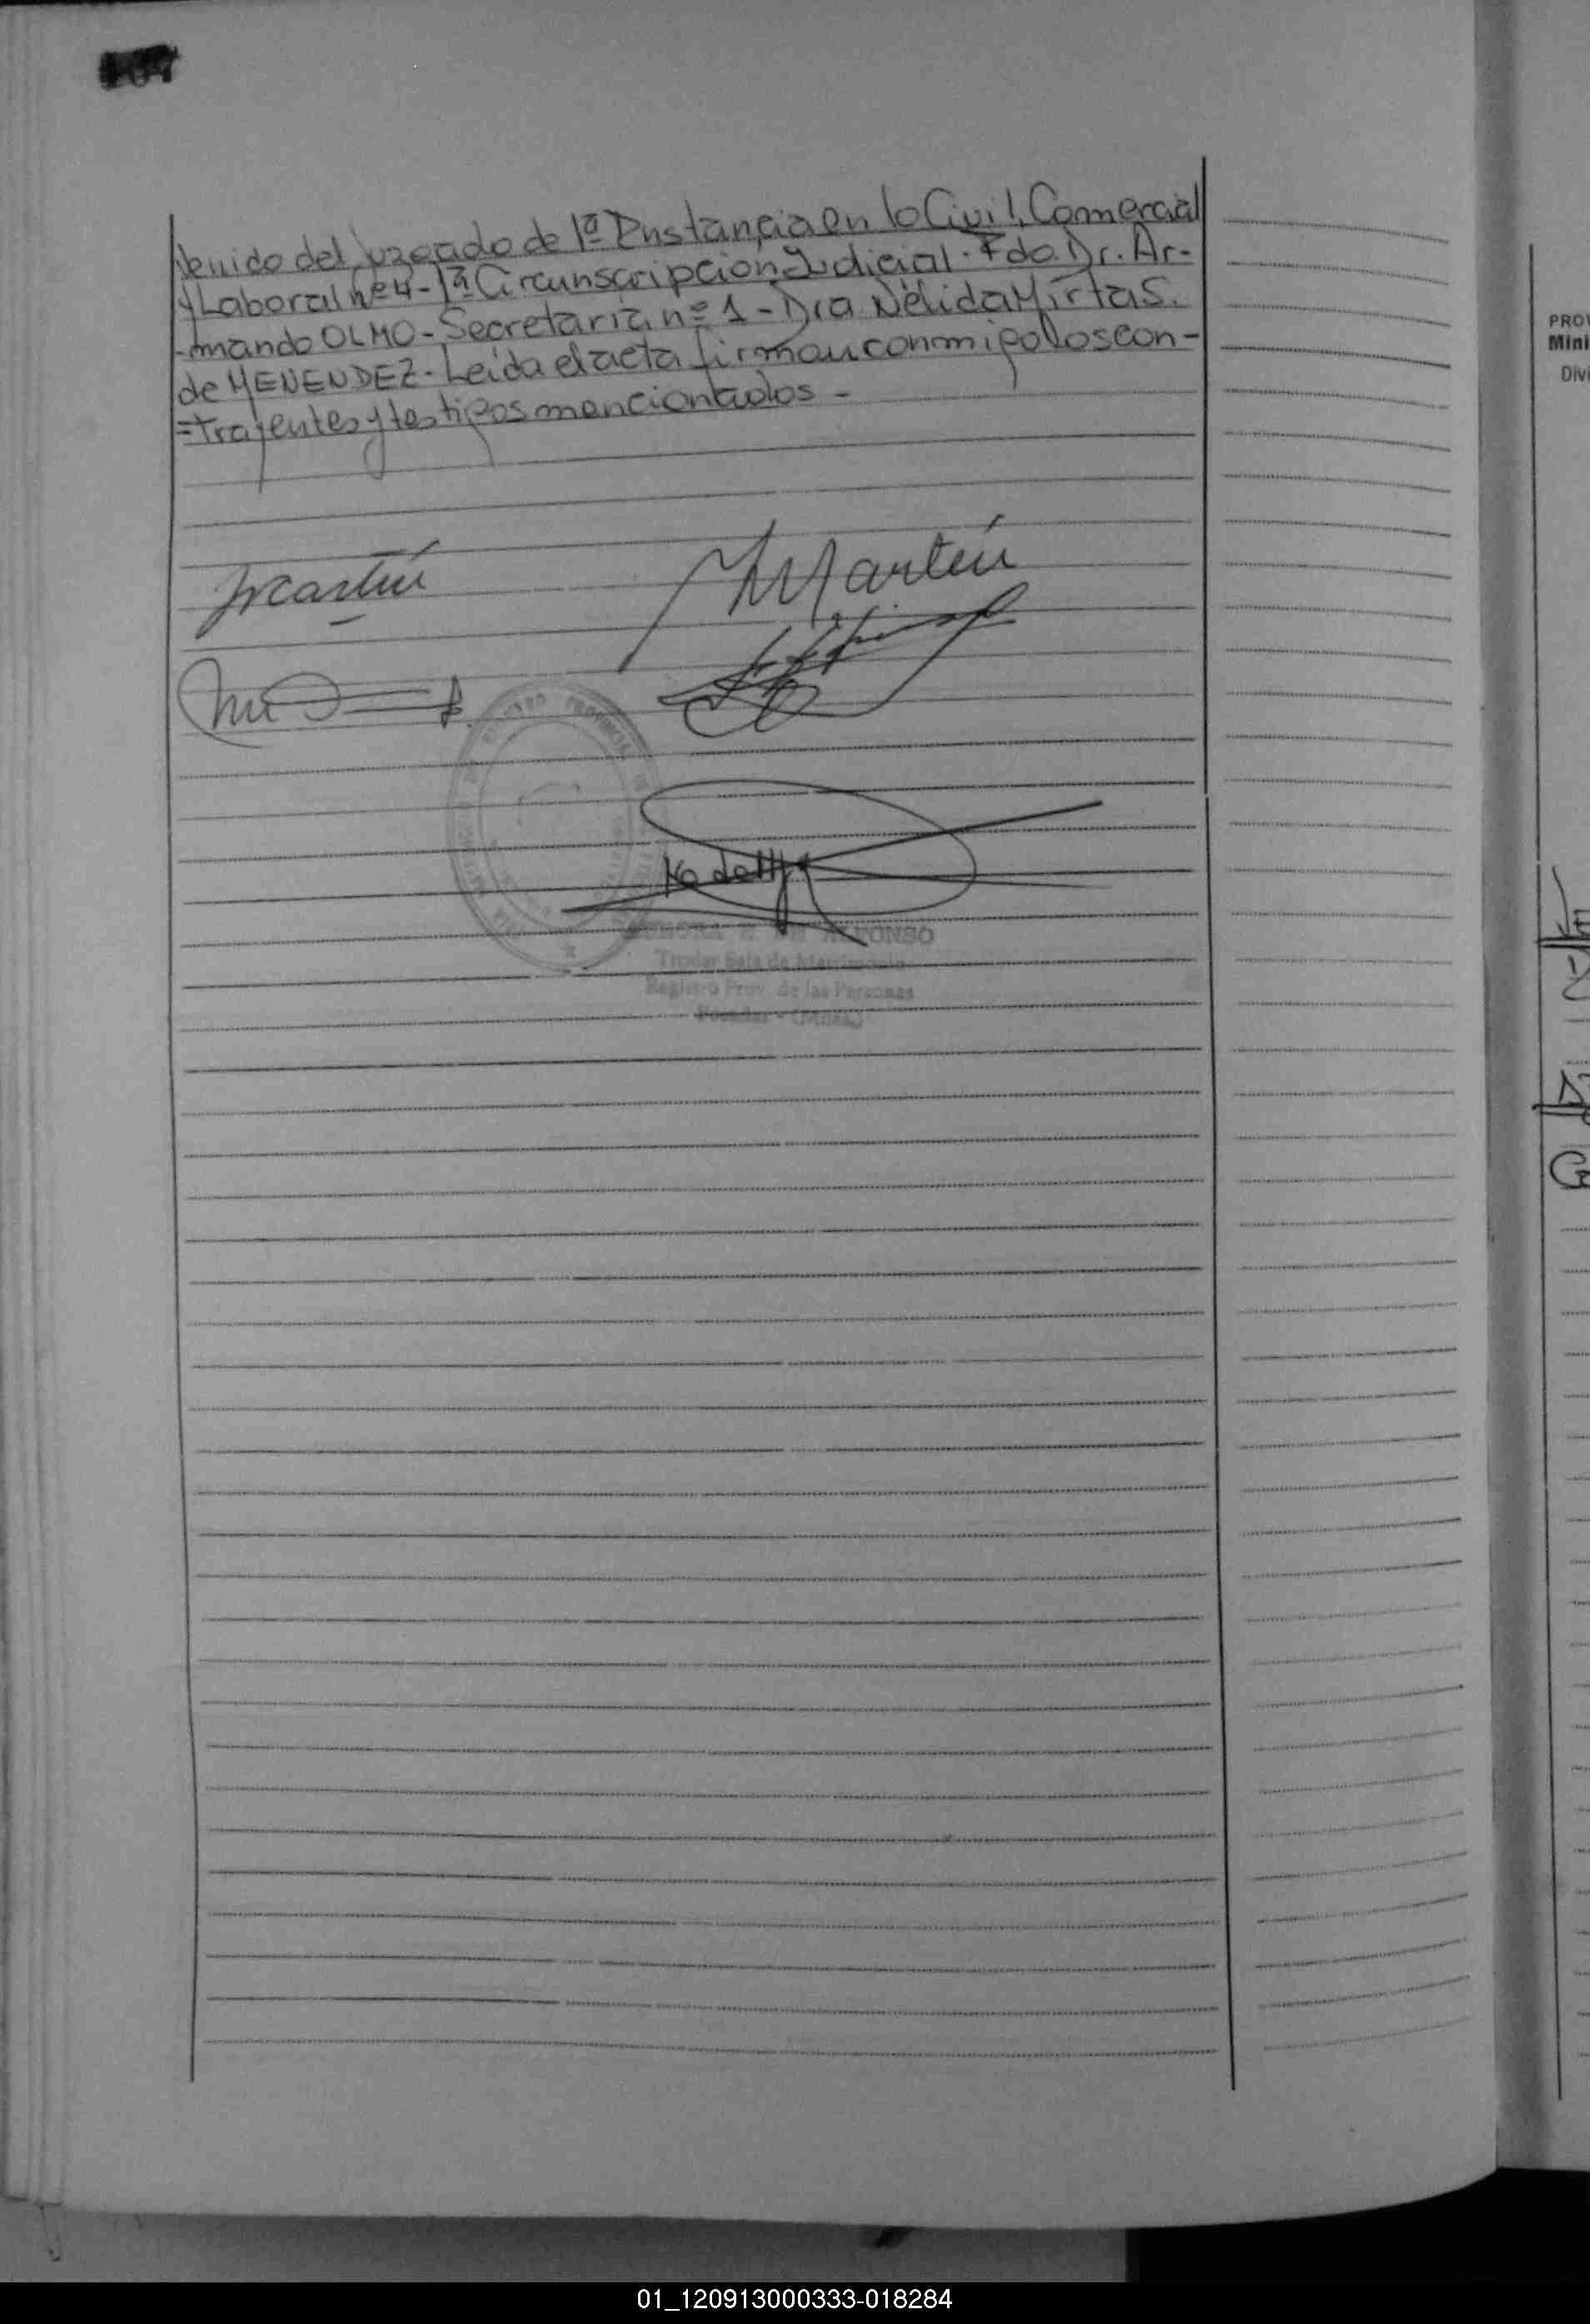 107
venido del Juzgado de 1ª Instancia en lo Civil, Comercial
y Laboral nº 4 - 1ª Circunscripción Judicial. Fdo. Dr. Ar-
-mando OLMO - Secretaría nº 1 - Dra. Nélida Mirta S.
de MENENDEZ - Leída el acta firman conmigo los con-
=trayentes y testigos mencionados -
Martín
Martín
ALFONSO
Titular Sala de Matrimonio
Registro Prov. de las Personas
Posadas - (Mnes.)
PROV
Mini
Divi
01_120913000333-018284